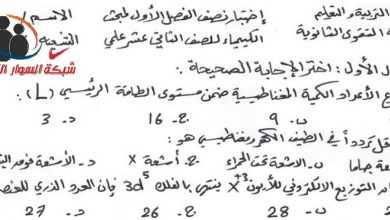 التربية و التعليم إختبار نصف الفصل الأول لمبحث الاسم
ة التقوى الثانوية الكيمياء للصف الثاني عشر علمي الشعبة
شبكة السوار ال
ال الأول: اختر الإجابة الصحيحة:
ع الأعداد الكمية المغناطيسية ضمن مستوى الطاقة الرئيسي (L):
ب. 9 ج. 16 د. 3
قل تردداً في الطيف الكهرومغناطيسي هو:
ة جاما ب. الأشعة تحت الحمراء ج. أشعة X د. الأشعة فوق
ان التوزيع الالكتروني للأيون X+3 ينتهي بالفلك 3d5 فإن العدد الذري للعنصر
ب. 28 ج. 26 د. 27